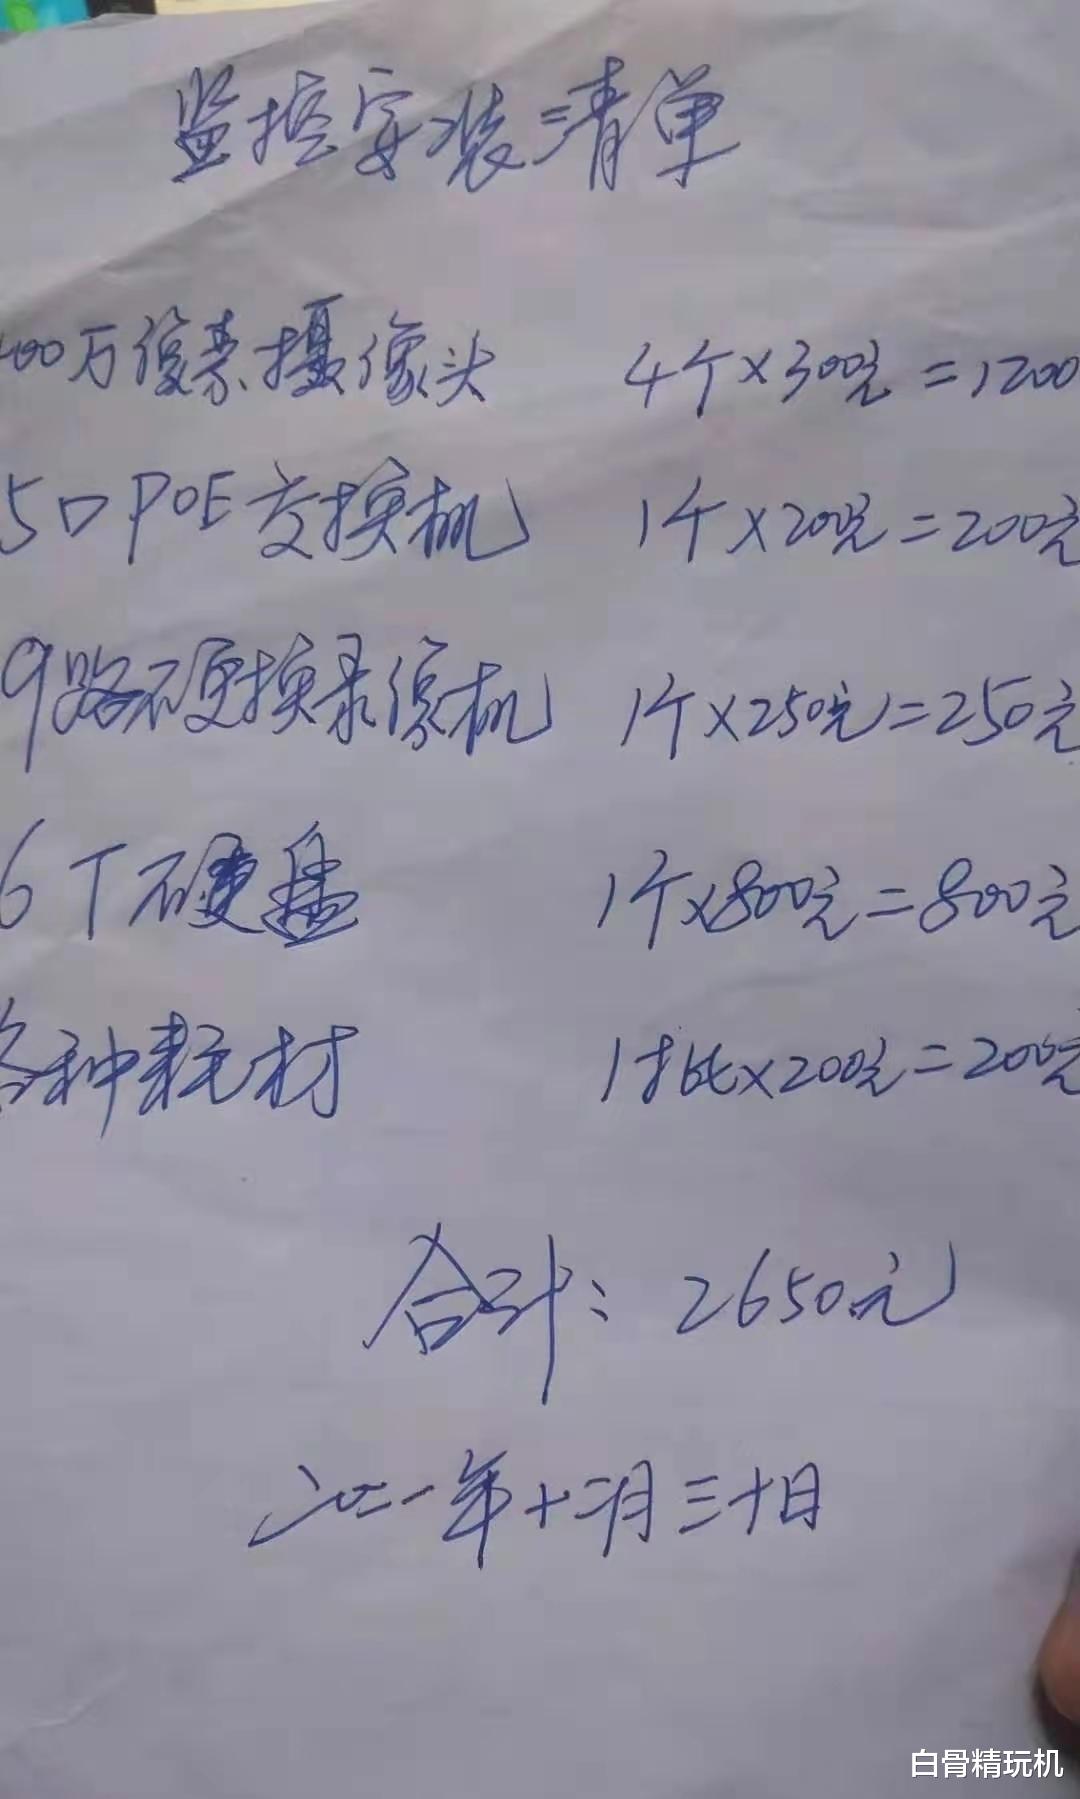 监控安装清单
400万像素摄像头 4个×300元=1200
5口POE交换机 1个×200元=200元
9路硬换录像机 1个×250元=250元
6T硬盘 1个×800元=800元
各种耗材 1批×200元=200元
合计:2650元
二0二一年十二月三十日
白骨精玩机